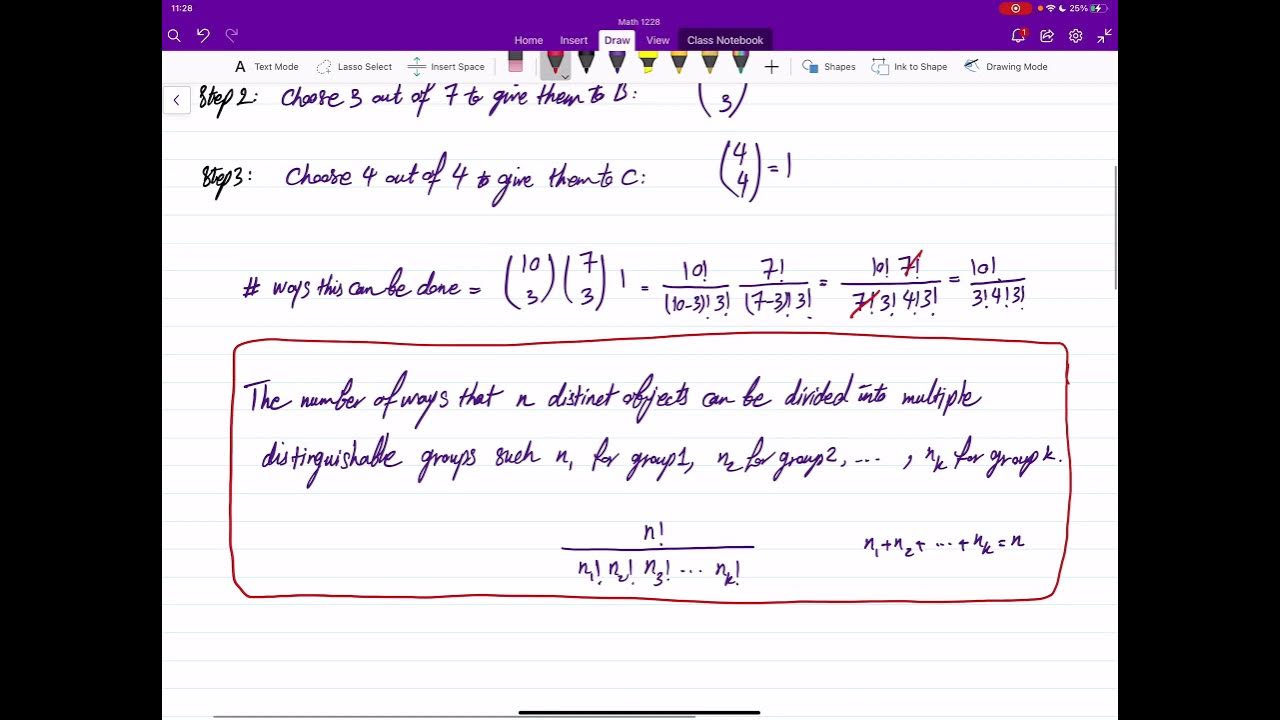 11:28
25%
Math 1228
Home Insert Draw View Class Notebook
1
A Text Mode Lasso Select Insert Space Shapes Ink to Shape Drawing Mode
Step 2: Choose 3 out of 7 to give them to B: ( 3 )
Step 3: Choose 4 out of 4 to give them to C: (4 4) = 1
# ways this can be done = (10 3) (7 3) 1 = 10! / (10-3)! 3! 7! / (7-3)! 3! = 10! 7! / 7! 3! 4! 3! = 10! / 3! 4! 3!
The number of ways that n distinct objects can be divided into multiple
distinguishable groups such n₁ for group 1, n₂ for group 2, ... , nₖ for group k.
n! / n₁! n₂! n₃! ... nₖ! n₁+n₂+ ... +nₖ = n